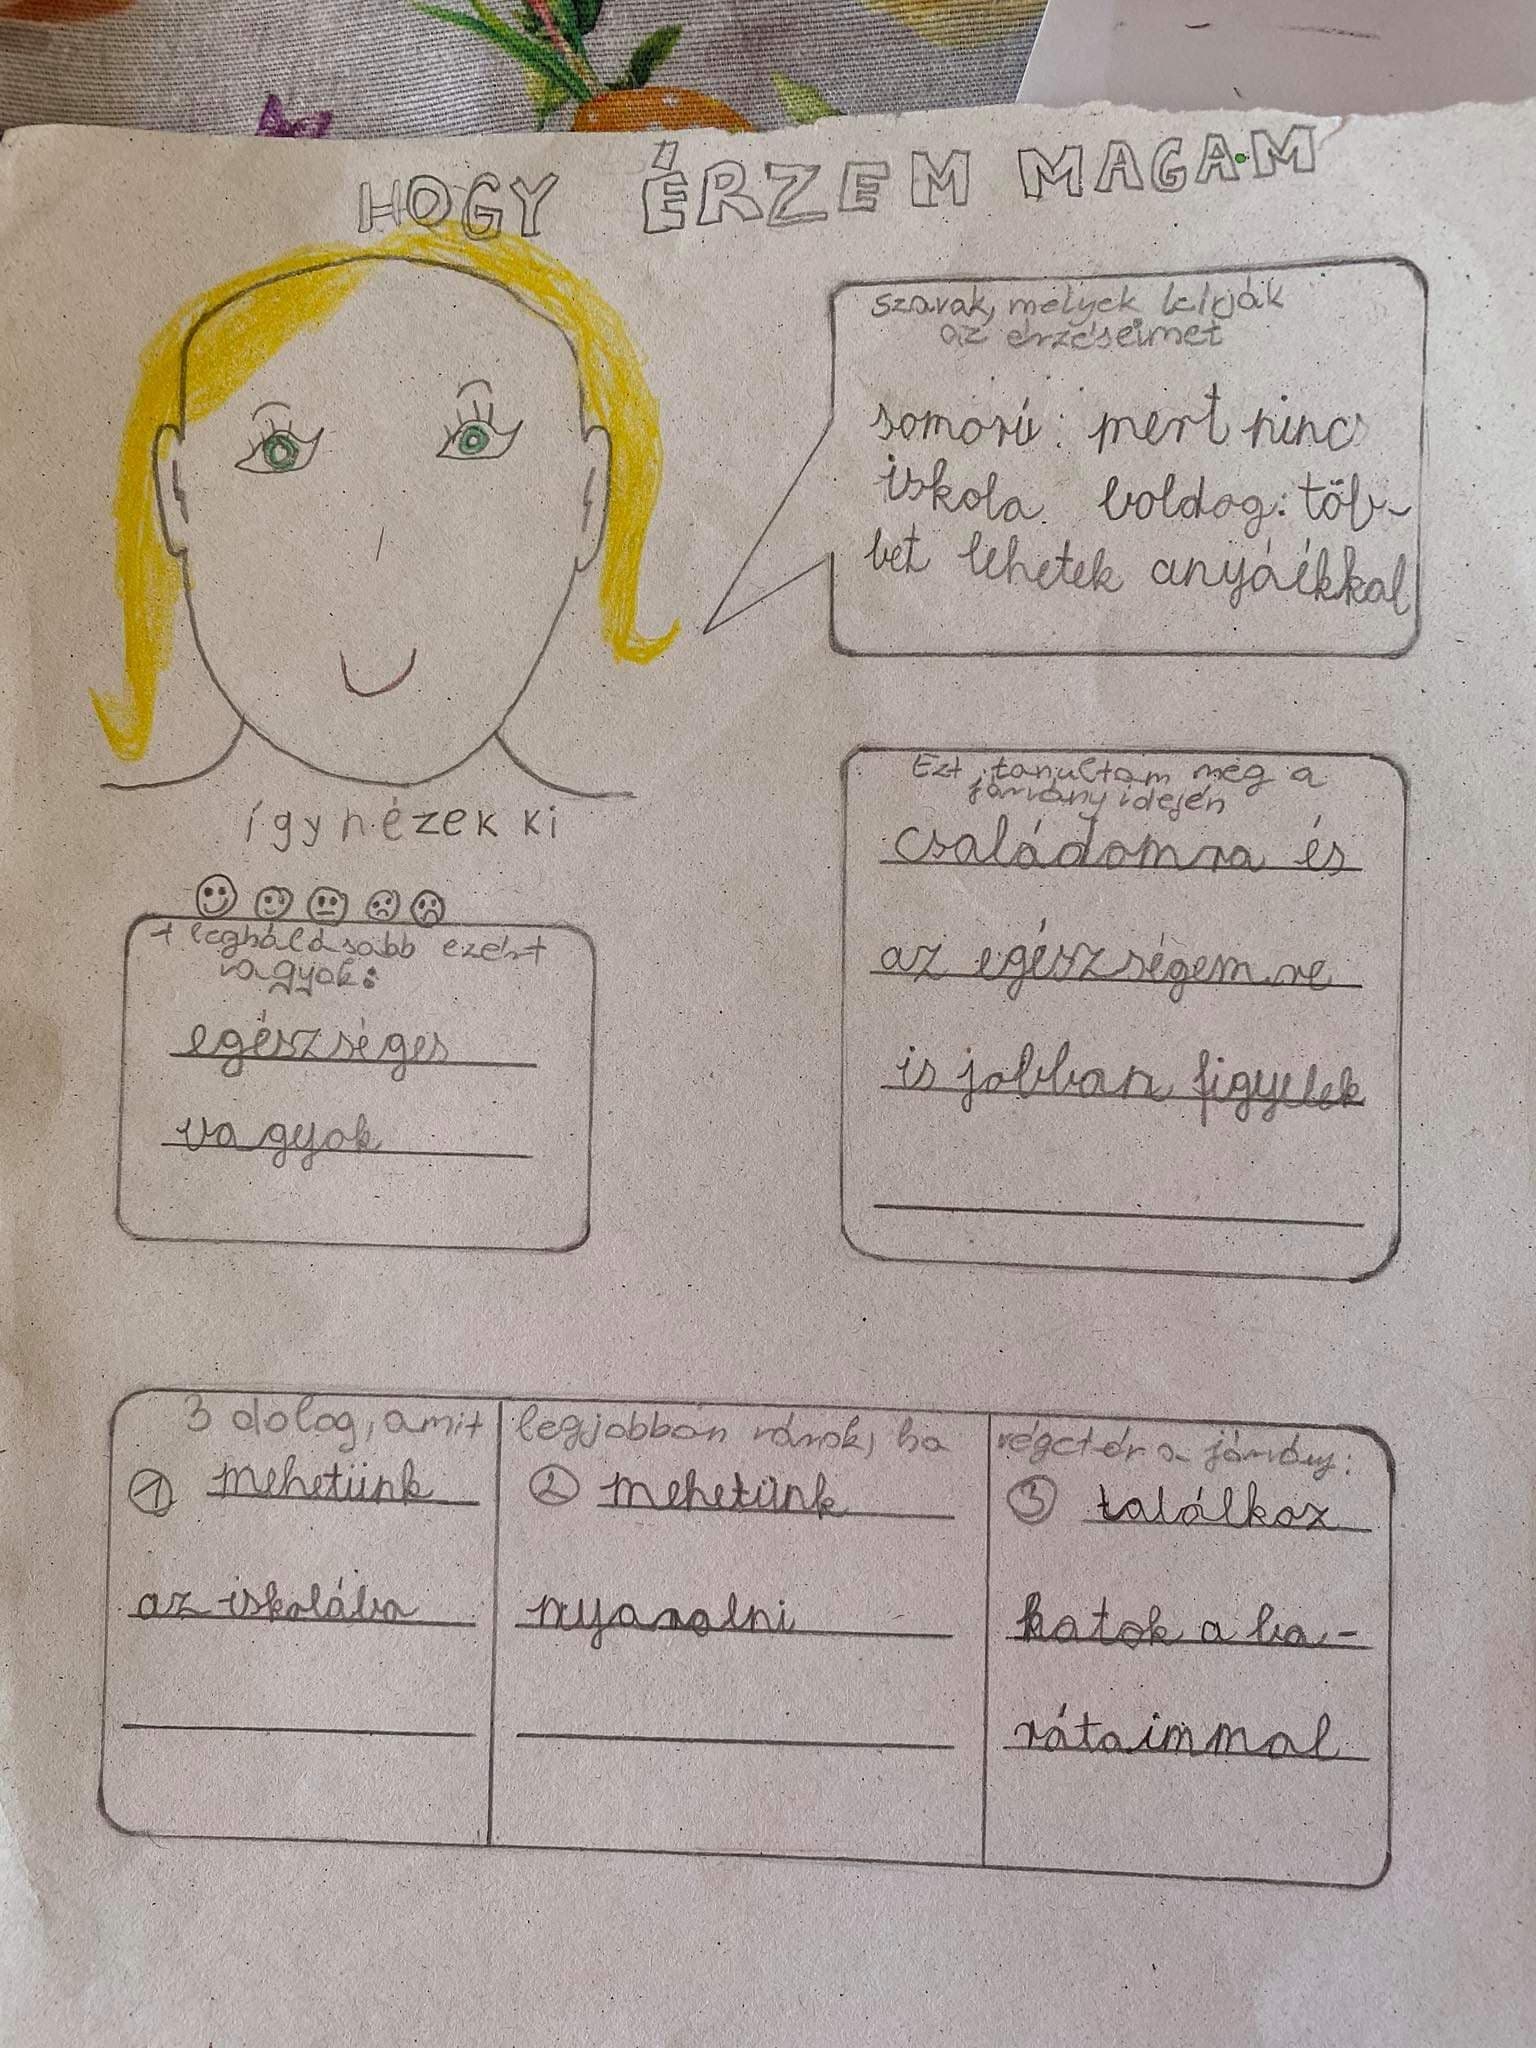 HOGY ÉRZEM MAGAM
szavak, melyek leírják
az érzéseimet
somorú: mert nincs
iskola boldog: töb-
bet lehetek anyáékkal
így nézek ki
Ezt tanultam meg a
járvány idején
családomra és
az egészségemre
is jobban figyelek
legháládsabb ezért
vagyok:
egészséges
vagyok
3 dolog, amit legjobban várok, ha végetér a járvány:
① mehetünk
az iskolába
② mehetünk
nyaralni
③ találkoz
hatok a ba-
rátaimmal